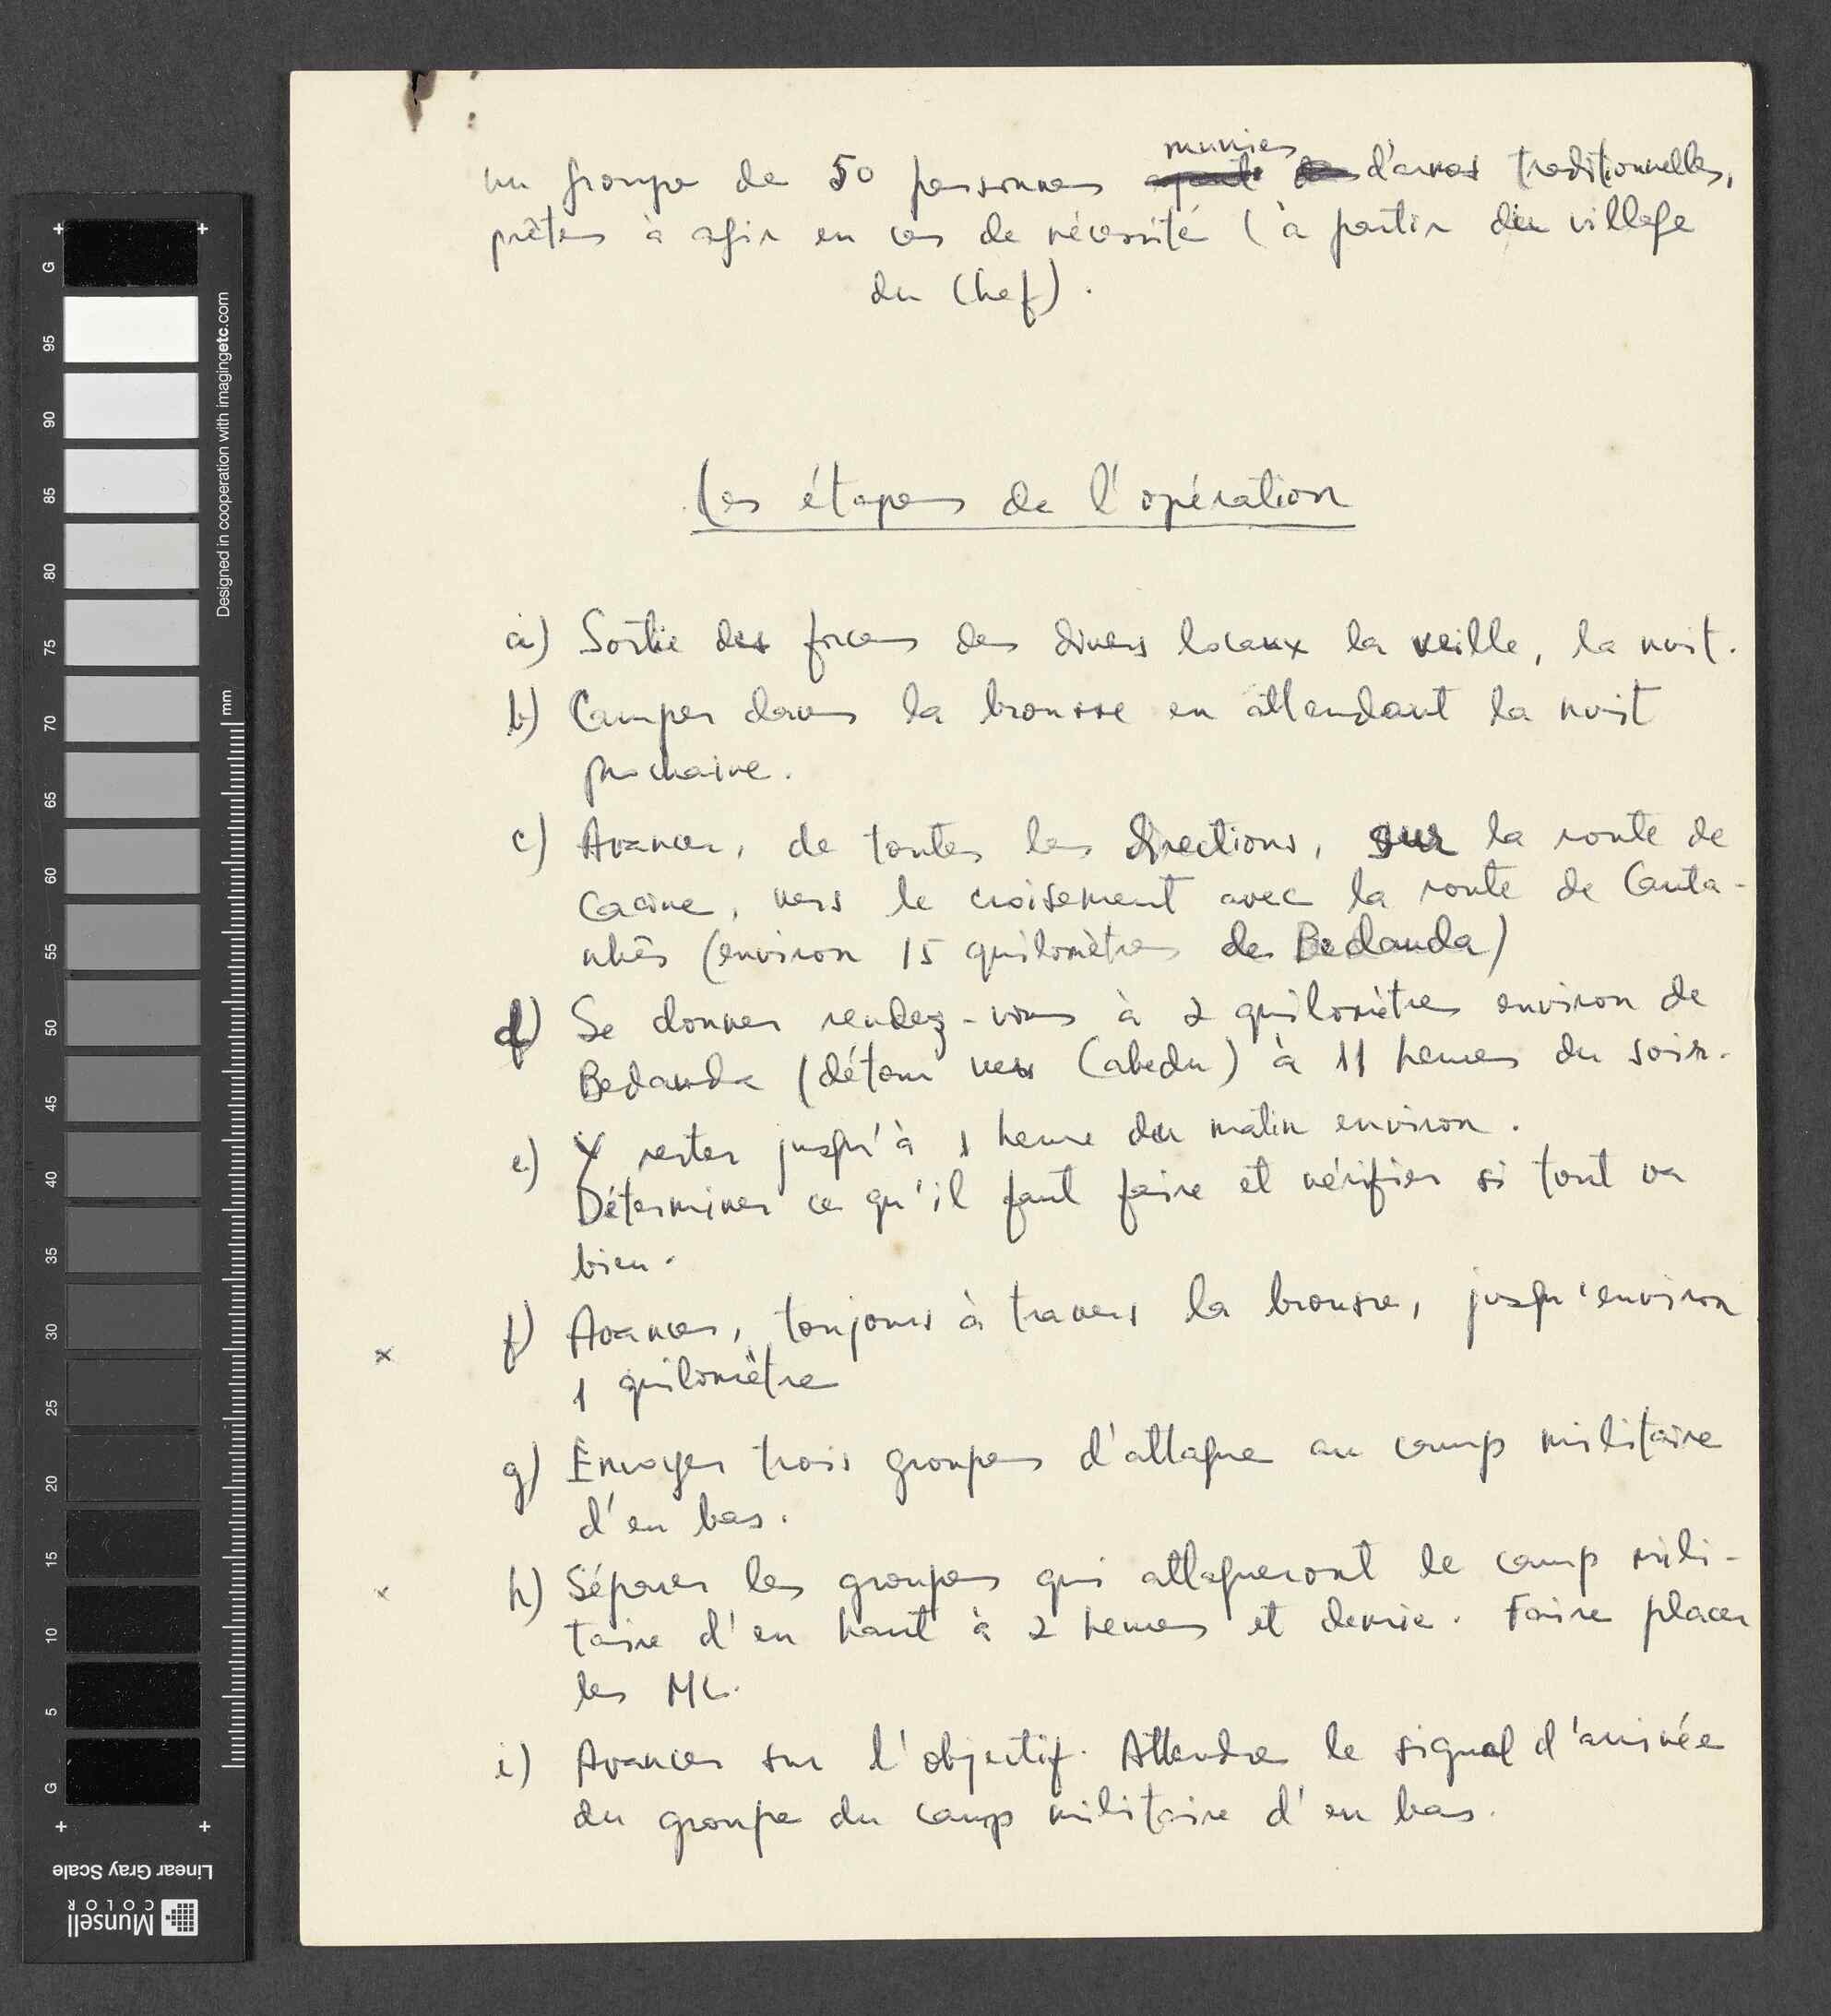 munies
un groupe de 50 personnes d'armes traditionnelles,
prêtes à agir en cas de nécessité (à partir du village
du Chef).
Les étapes de l'opération
a) Sortie des forces des divers locaux la veille, la nuit.
b) Camper dans la brousse en attendant la nuit
prochaine.
c) Avancer, de toutes les directions, sur la route de
Cacine, vers le croisement avec la route de Canta-
nhês (environ 15 quilomètres de Bedanda)
d) Se donner rendez-vous à 2 quilomètres environ de
Bedanda (détour vers Cabedu) à 11 heures du soir.
e) Y rester jusqu'à 1 heure du matin environ.
Déterminer ce qu'il faut faire et vérifier si tout va
bien.
x f) Avancer, toujours à travers la brousse, jusqu'environ
1 quilomètre
g) Envoyer trois groupes d'attaque au camp militaire
d'en bas.
x h) Séparer les groupes qui attaqueront le camp mili-
taire d'en haut à 2 heures et demie. Faire placer
les ML.
i) Avancer sur l'objectif. Attendre le signal d'arrivée
du groupe du camp militaire d'en bas.
G
95
90
85
80
75
70
65
60
55
50
45
40
35
30
25
20
15
10
5
G
Designed in cooperation with imagingetc.com
mm
Linear Gray Scale
Munsell
COLOR